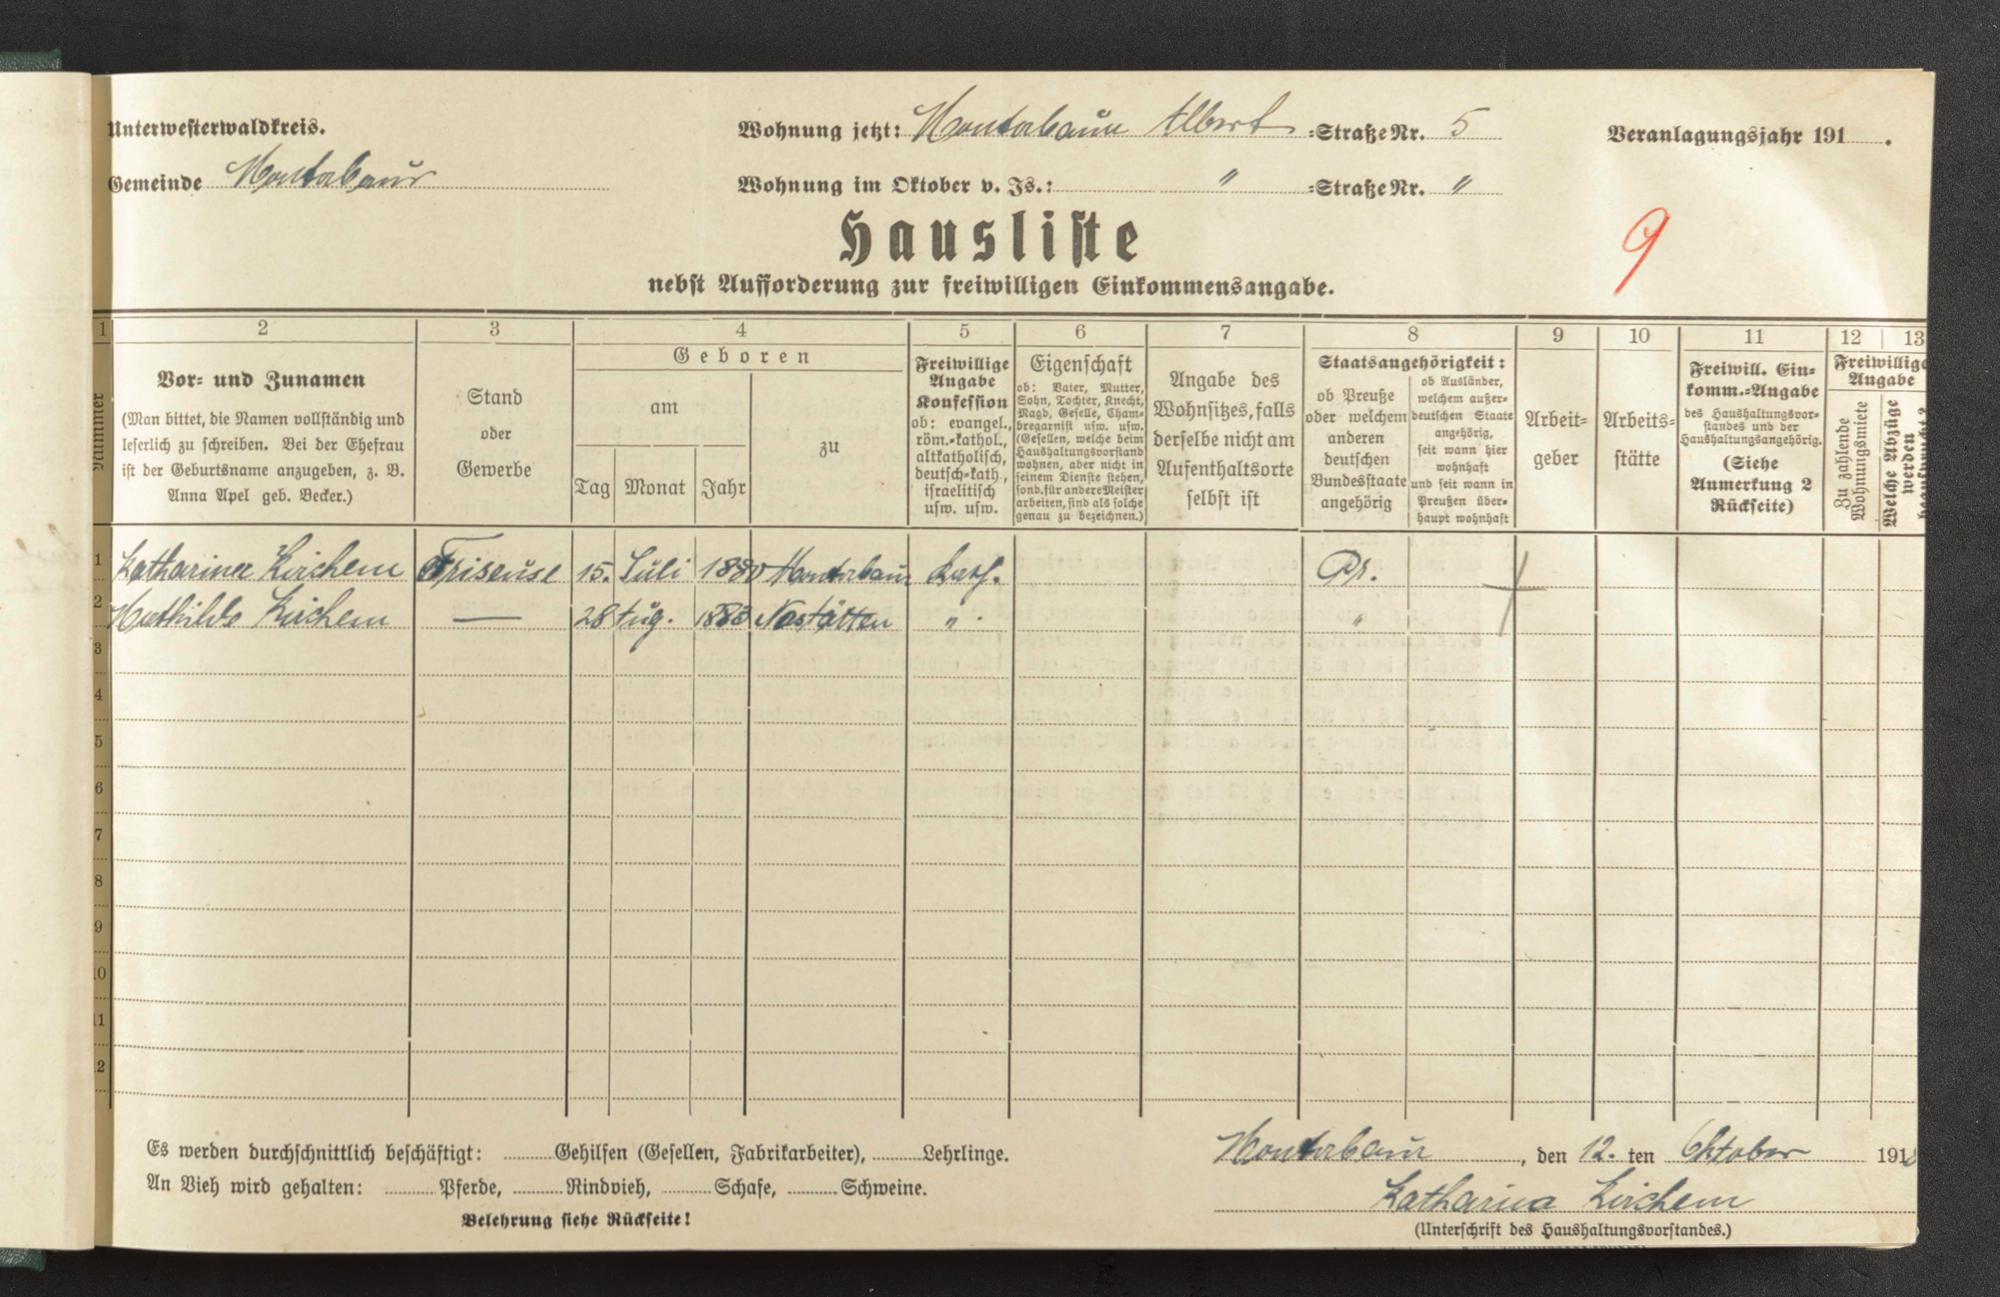 Unterwesterwaldkreis.
Wohnung jetzt: Montabaur Albert =Straße Nr. 5
Veranlagungsjahr 191 .
Gemeinde Montabaur
Wohnung im Oktober v. Js.: " =Straße Nr. "
Hausliste
9
nebst Aufforderung zur freiwilligen Einkommensangabe.
1 2 3 4 5 6 7 8 9 10 11 12 13
Nummer
Vor= und Zunamen
(Man bittet, die Namen vollständig und
leserlich zu schreiben. Bei der Ehefrau
ist der Geburtsname anzugeben, z. B.
Anna Apel geb. Becker.)
Stand
oder
Gewerbe
Geboren
am
Tag Monat Jahr
zu
Freiwillige
Angabe
Konfession
ob: evangel.,
röm.=kathol.,
altkatholisch,
deutsch=kath.,
israelitisch
usw. usw.
Eigenschaft
ob: Vater, Mutter,
Sohn, Tochter, Knecht,
Magd, Geselle, Cham=
bregarnist usw. usw.
(Gesellen, welche beim
Haushaltungsvorstand
wohnen, aber nicht in
seinem Dienste stehen,
sond. für andere Meister
arbeiten, sind als solche
genau zu bezeichnen.)
Angabe des
Wohnsitzes, falls
derselbe nicht am
Aufenthaltsorte
selbst ist
Staatsangehörigkeit:
ob Preuße
oder welchem
anderen
deutschen
Bundesstaate
angehörig
ob Ausländer,
welchem außer=
deutschen Staate
angehörig,
seit wann hier
wohnhaft
und seit wann in
Preußen über=
haupt wohnhaft
Arbeit=
geber
Arbeits=
stätte
Freiwill. Ein=
komm.=Angabe
des Haushaltungsvor=
standes und der
Haushaltungsangehörig.
(Siehe
Anmerkung 2
Rückseite)
Freiwillige
Angabe
Zu zahlende
Wohnungsmiete
Welche Abzüge
werden
1 Katharina Kirchem Friseuse 15. Juli 1880 Montabaur kath. Pr.
2 Mathilde Kirchem — 28 Aug. 1883 Nastätten " "
3
4
5
6
7
8
9
10
11
12
Es werden durchschnittlich beschäftigt: Gehilfen (Gesellen, Fabrikarbeiter), Lehrlinge.
An Vieh wird gehalten: Pferde, Rindvieh, Schafe, Schweine.
Belehrung siehe Rückseite!
Montabaur, den 12. ten Oktober 191
Katharina Kirchem
(Unterschrift des Haushaltungsvorstandes.)